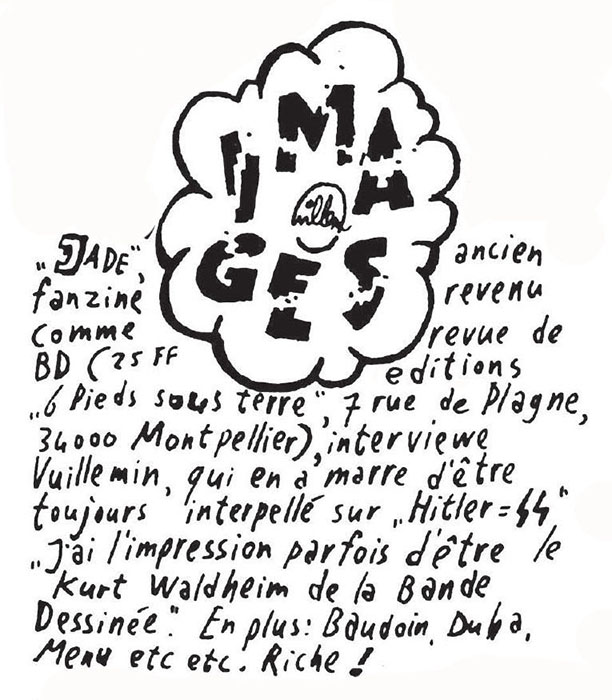 IMAGES
willem
„JADE", ancien
fanzine revenu
comme revue de
BD (25 FF editions
„6 Pieds sous terre", 7 rue de Plagne,
34000 Montpellier), interviewe
Vuillemin, qui en a marre d'être
toujours interpellé sur „Hitler = SS"
„J'ai l'impression parfois d'être le
Kurt Waldheim de la Bande
Dessinée". En plus: Baudoin, Duba,
Menu etc etc. Riche !